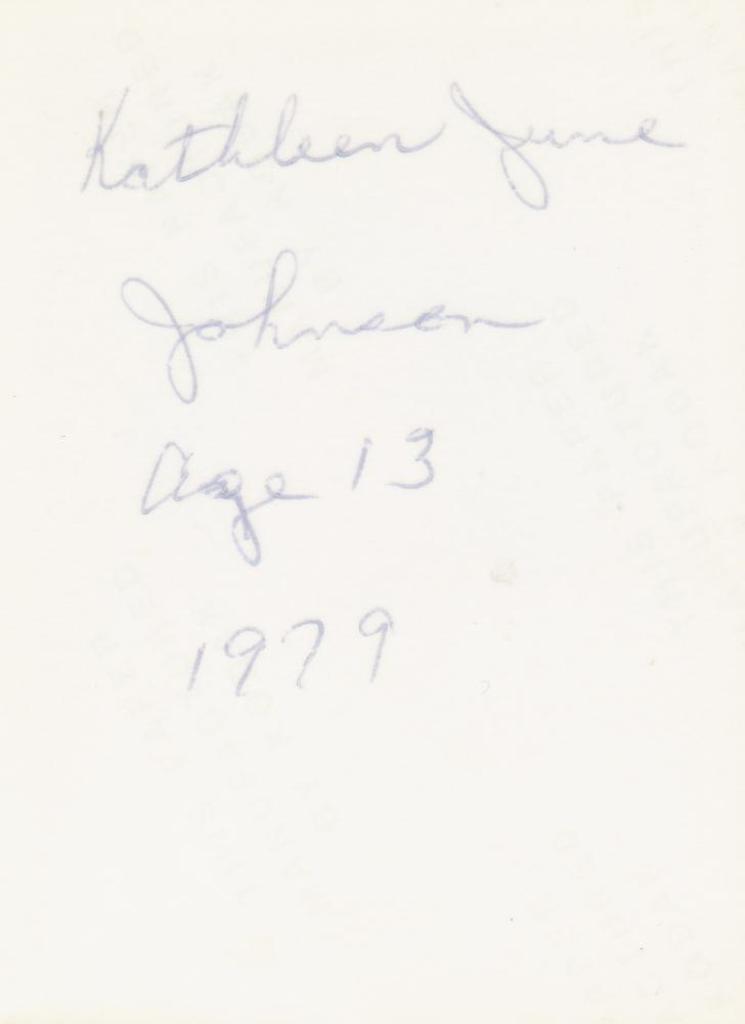 Kathleen June
Johnson
Age 13
1979